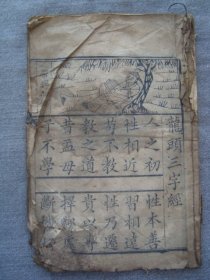 龍頭三字經
人之初 性本善
性相近 習相遠
苟不教 性乃遷
教之道 貴以專
昔孟母 擇鄰處
子不學 斷機